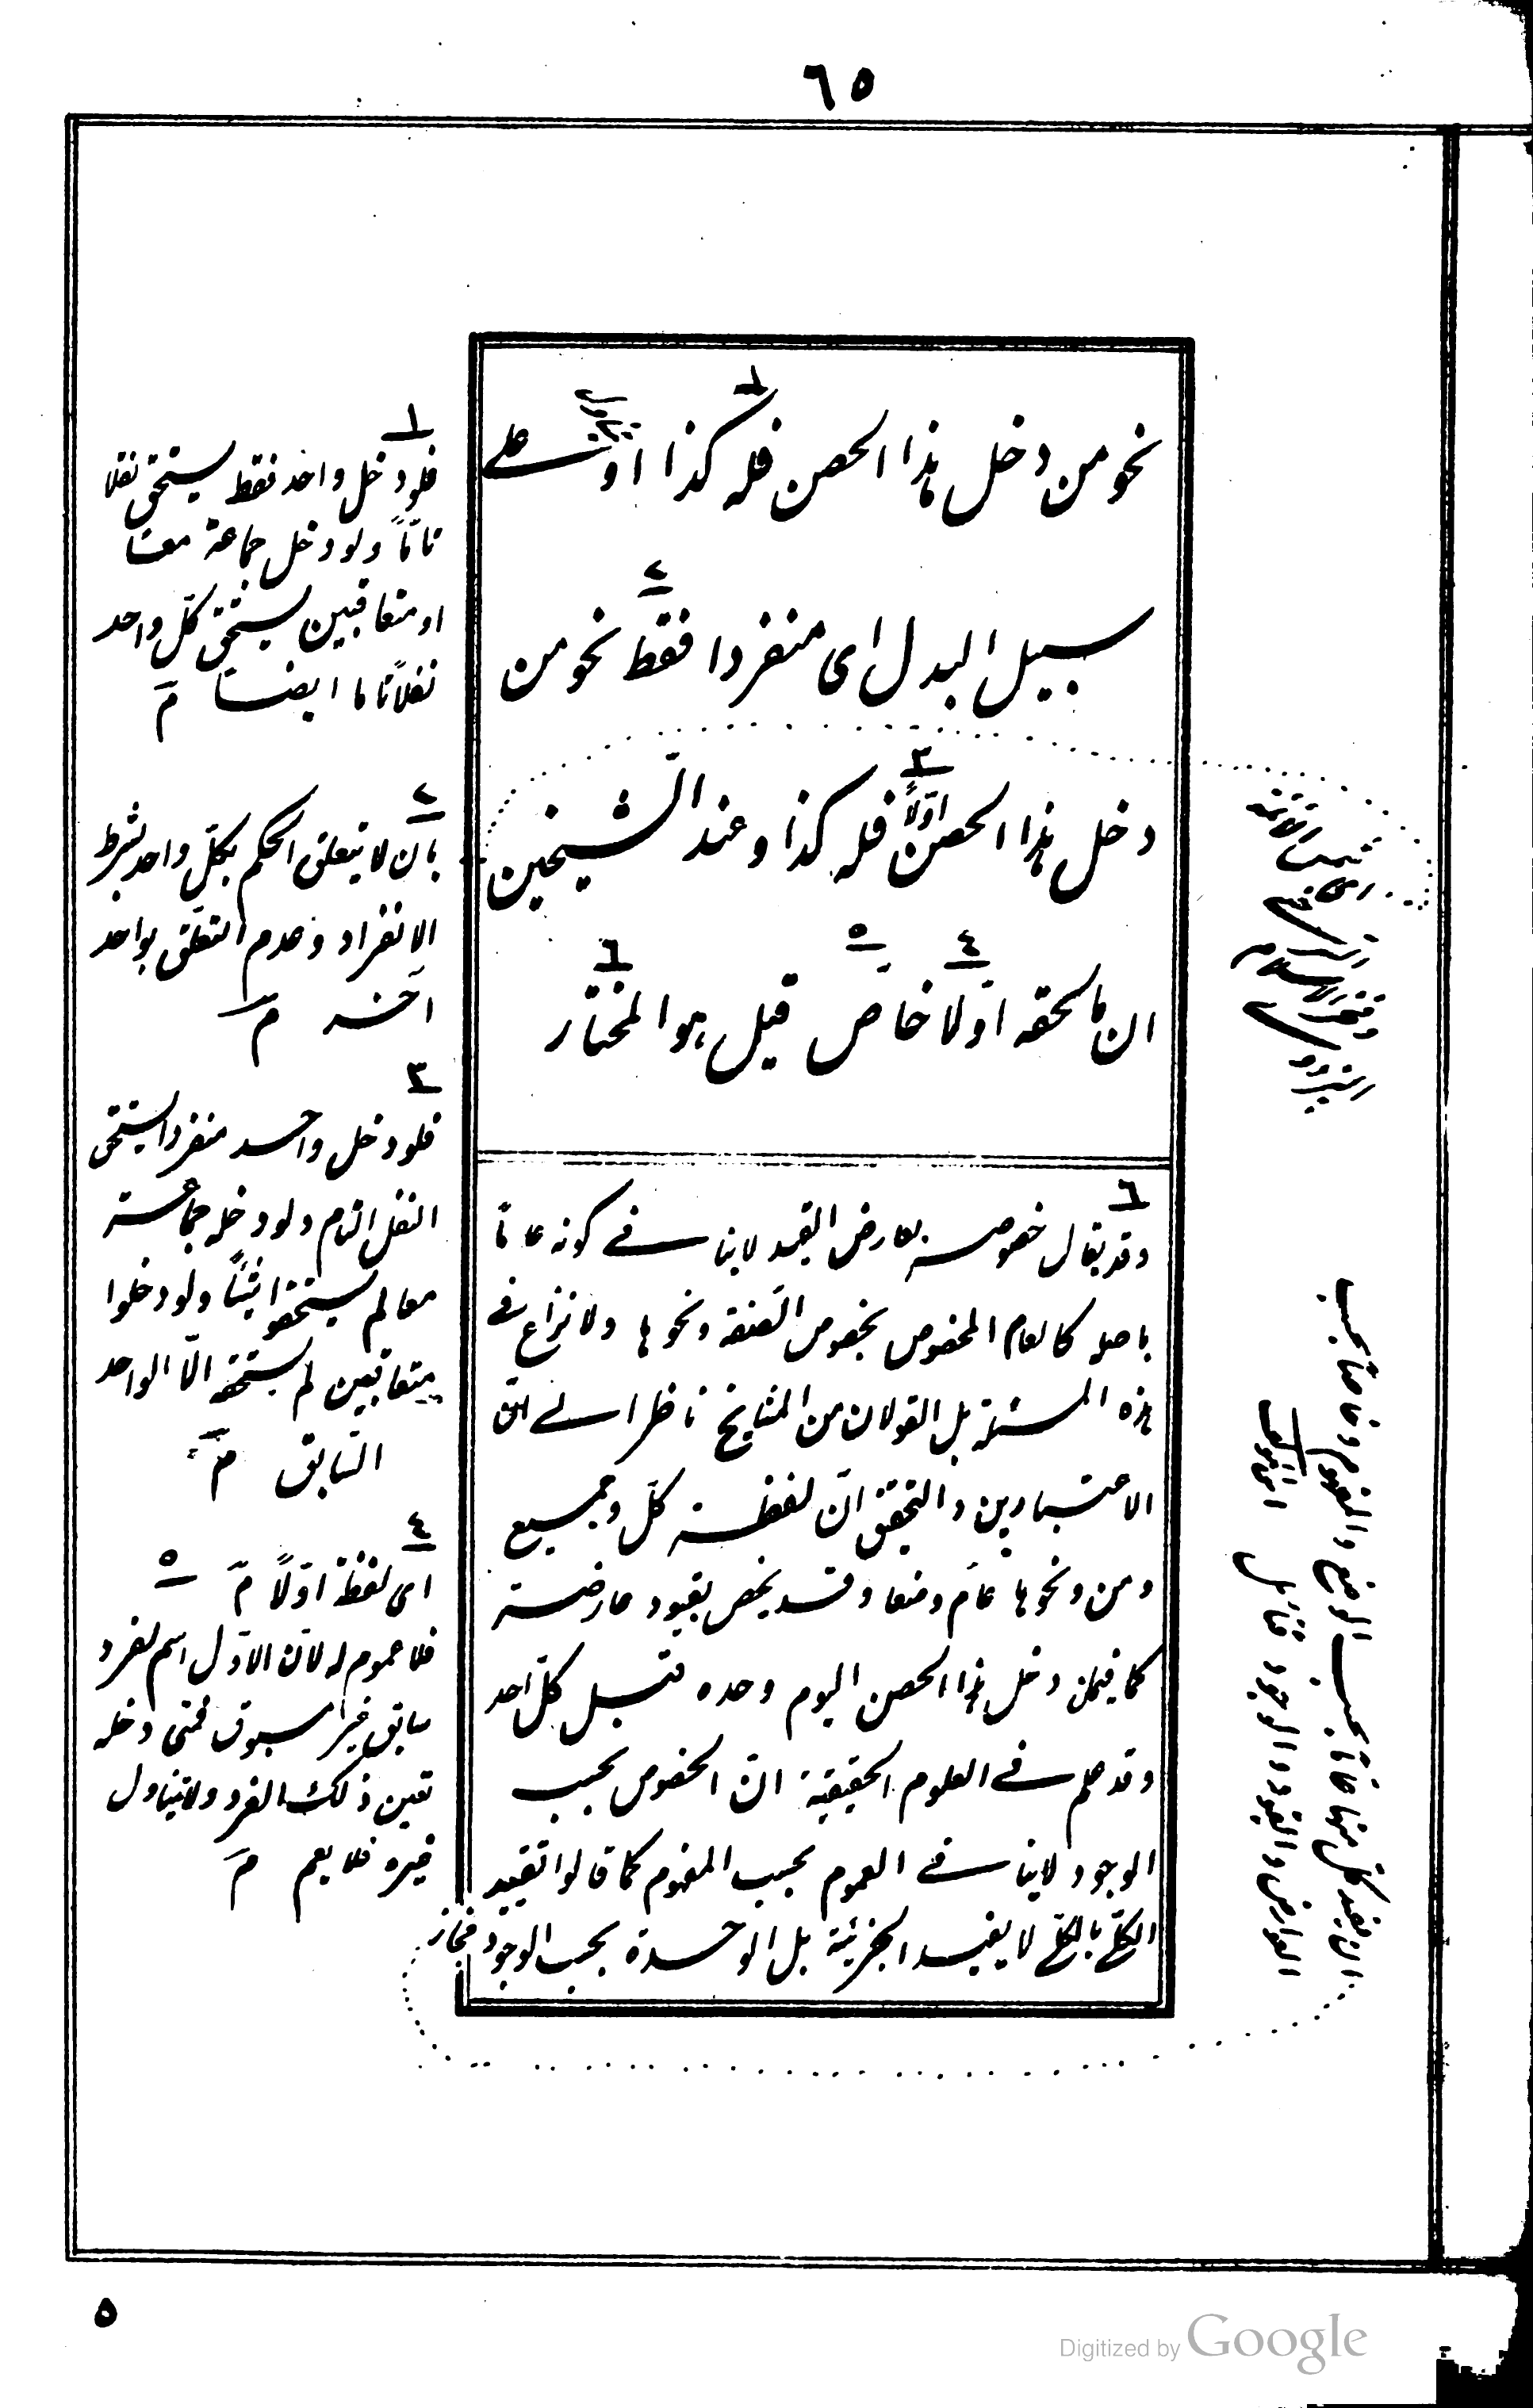 ٦٥
نحو من دخل هذا الحصن فله كذا او على
سبيل البدل اى منفردا فقط نحو من
دخل هذا الحصن اوّلاً فله كذا وعند الشّيخين
ان ما لحقه اوّلا خاص قيل هو المختار
٦
وقد يقال خصوصه بعارض القيد لا ينافى كونه عامّا
باصله كالعام المخصوص بخصوص الصّفة ونحوها ولا نزاع فى
هذه المسئلة بل القولان من المشايخ ناظر الى انّ
الاعتبارين والتحقيق انّ لفظة كلّ وجميع
ومن ونحوها عامّ وضعا وقد يخص بقيود عارضة
كما فيمن دخل هذا الحصن اليوم وحده قبل كلّ احد
وقد علم فى العلوم الحقيقية انّ الخصوص بحسب
الوجود لا ينافى العموم بحسب المفهوم كما قالوا تقييد
الكلّى بالكلّى لا يفيد الجزئية بل الوحدة بحسب الوجود فجاز
١
فلو دخل واحد فقط يستحق نفلا
تامّاً ولو دخل جماعة معا
او متعاقبين يستحق كلّ واحد
نفلاً تاما ايضا مّ
٢
بان لا يتعلق الحكم بكلّ واحد بشرط
الانفراد وعدم التعلّق بواحد
آخر مّ
٣
فلو دخل واحد منفردا يستحق
النفل التام ولو دخله جماعة
معا لم يستحقوا شيئاً ولو دخلوا
متعاقبين لم يستحقه الّا الواحد
السّابق مّ
٤
اى لفظة اوّلاً مّ
٥
فلا عموم له لانّ الاوّل اسم لفرد
سابق غير مسبوق فمتى دخله
تعين ذلك الفرد ولا يتناول
غيره فلا يعم مّ
شمس الائمة
السرخسى
وفخر الاسلام
البزدوى
ان يفيد كلّ منها خاصّا بحسب الوضع والمفهوم وخاصّا بحسب
العوارض والقيود والوجود تأمّل
٥
Digitized by Google